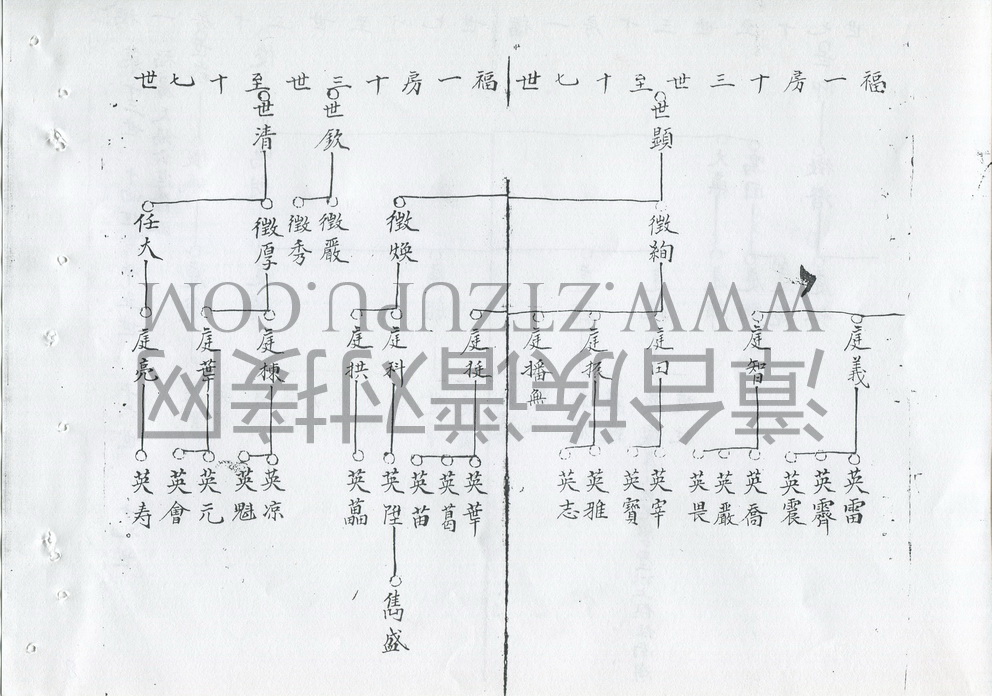 福一房十三世至十七世
世顯
徵絢
庭義
庭智
庭田
庭振
庭播
無
英雷
英霽
英震
英喬
英嚴
英畏
英宰
英寶
英雅
英志
福一房十三世至十七世
世欽
世清
徵煥
徵嚴
徵秀
徵厚
任大
庭挺
庭科
庭拱
庭棟
庭葉
庭亮
英華
英葛
英苗
英陞
英藟
英凉
英魁
英元
英會
英寿
雋盛
WWW.ZTZUPU.COM
漳台族谱对接网